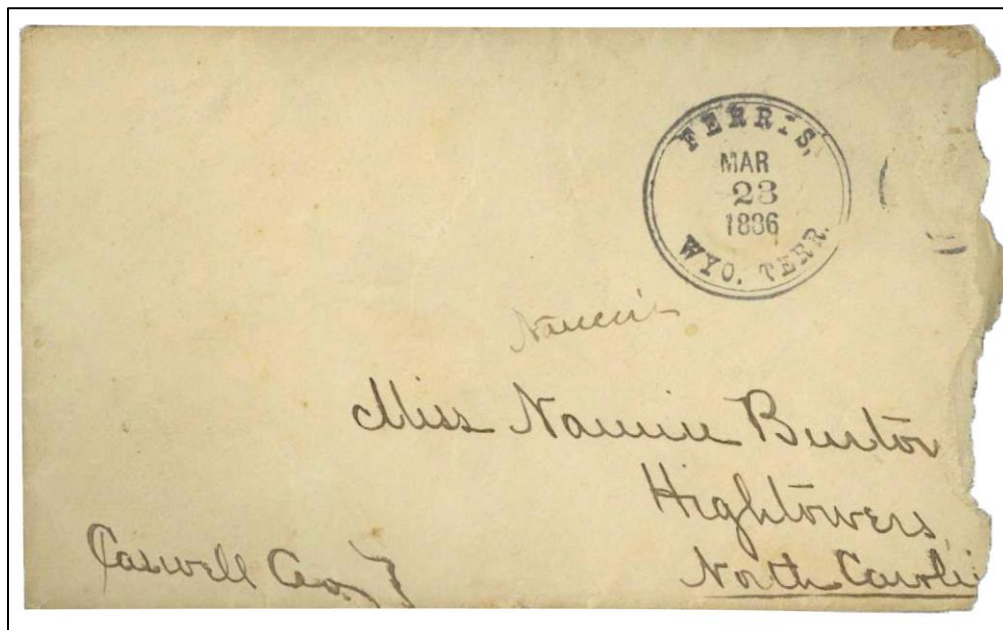 FERRIS,
MAR
23
1886
WYO. TERR.
Nannie
Miss Nannie Burton
Hightowers,
North Caroli
Caswell Co.